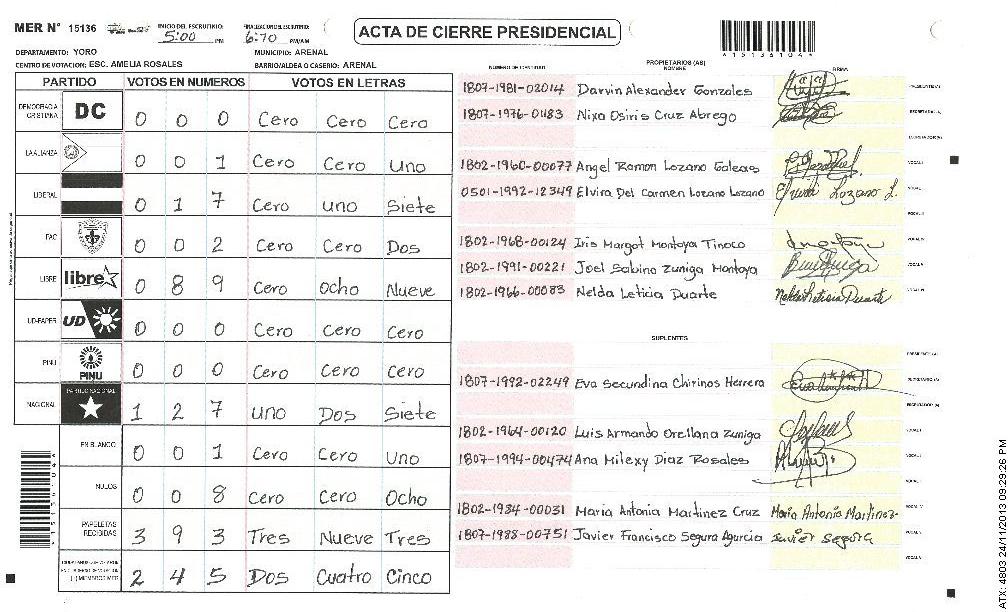 MER N° 15136
INICIO DEL ESCRUTINIO: 5:00 PM
FINALIZACION DEL ESCRUTINIO: 6:70 PM/AM
ACTA DE CIERRE PRESIDENCIAL
A151361044
DEPARTAMENTO: YORO
MUNICIPIO: ARENAL
CENTRO DE VOTACION: ESC. AMELIA ROSALES
BARRIO/ALDEA O CASERIO: ARENAL
PARTIDO VOTOS EN NUMEROS VOTOS EN LETRAS
DEMOCRACIA CRISTIANA DC 0 0 0 Cero Cero Cero
LA ALIANZA 0 0 1 Cero Cero Uno
LIBERAL 0 1 7 Cero uno Siete
PAC 0 0 2 Cero Cero Dos
LIBRE libre 0 8 9 Cero Ocho Nueve
UD-FAPER UD 0 0 0 Cero Cero Cero
PINU PINU 0 0 0 Cero Cero Cero
NACIONAL PARTIDO NACIONAL 1 2 7 Uno Dos Siete
EN BLANCO 0 0 1 Cero Cero Uno
NULOS 0 0 8 Cero Cero Ocho
PAPELETAS RECIBIDAS 3 9 3 Tres Nueve Tres
(+) MIEMBROS MER 2 4 5 Dos Cuatro Cinco
NUMERO DE IDENTIDAD PROPIETARIOS (AS) NOMBRE FIRMA
1807-1981-02014 Darvin Alexander Gonzales PRESIDENTE (A)
1807-1976-01183 Nixa Osiris Cruz Abrego SECRETARIO (A)
ESCRUTADOR (A)
1802-1960-00077 Angel Ramon Lozano Galeas VOCAL I
0501-1992-12349 Elvira Del Carmen Lozano Lozano Elvira Lozano L. VOCAL II
VOCAL III
1802-1968-00124 Iris Margot Montoya Tinoco VOCAL IV
1802-1991-00221 Joel Sabino Zuniga Montoya VOCAL V
1802-1966-00083 Nelda Leticia Duarte Nelda Leticia Duarte VOCAL VI
SUPLENTES
PRESIDENTE (A)
1807-1992-02249 Eva Secundina Chirinos Herrera SECRETARIO (A)
ESCRUTADOR (A)
1802-1964-00120 Luis Armando Orellana Zuniga VOCAL I
1807-1994-00474 Ana Milexy Diaz Rosales VOCAL II
1802-1984-00031 Maria Antonia Martinez Cruz Maria Antonia Martinez VOCAL IV
1807-1988-00751 Javier Francisco Segura Agurcia Javier Segura VOCAL V
VOCAL VI
A151361044
ATX: 4803 24/11/2013 09:29:26 PM